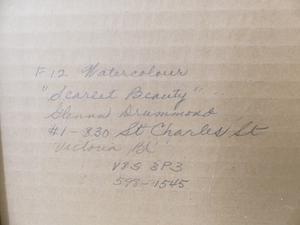 F12 Watercolour
"Scarlet Beauty"
Glenna Drummond
#1-830 St Charles St
Victoria BC
V8S 3P3
598-1545